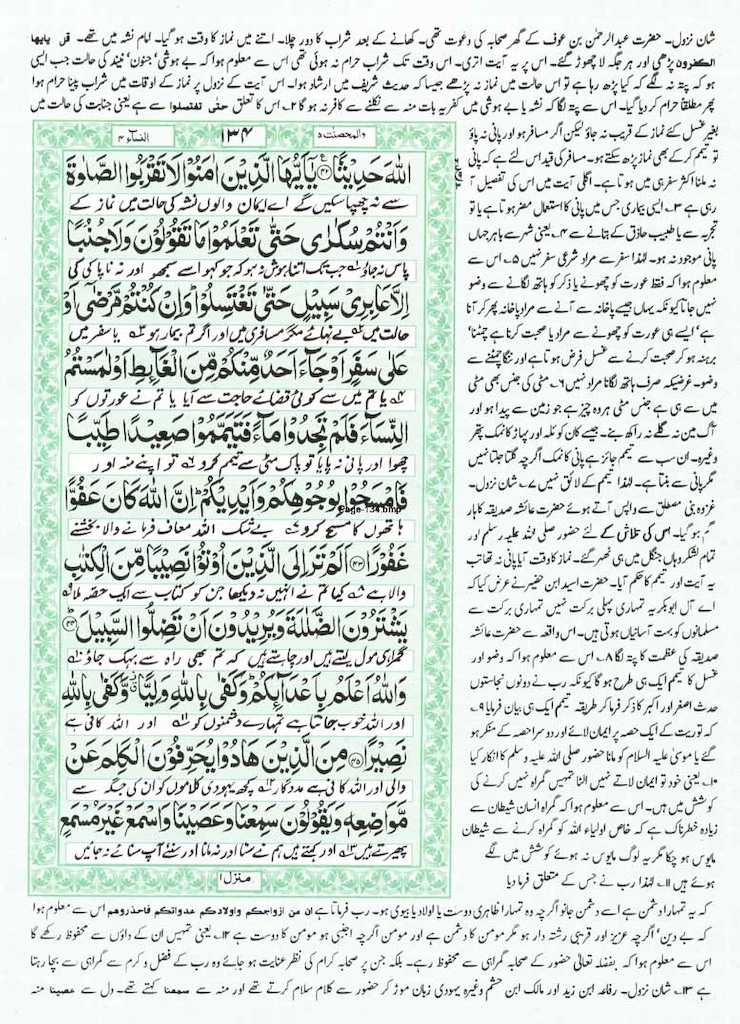 شان نزول۔ حضرت عبدالرحمٰن بن عوف کے گھر صحابہ کی دعوت تھی۔ کھانے کے بعد شراب کا دور چلا۔ اتنے میں نماز کا وقت ہو گیا۔ امام نشہ میں تھے۔ قل یایها
الکفرون پڑھی اور ہر جگہ لا چھوڑ گئے۔ اس پر یہ آیت اتری۔ اس وقت تک شراب حرام نہ ہوئی تھی اس سے معلوم ہوا کہ بے ہوشی' جنون' نیند کی حالت جب ایسی
ہو کہ پتہ نہ لگے کہ کیا پڑھ رہا ہے تو اس حالت میں نماز نہ پڑھے جیسا کہ حدیث شریف میں ارشاد ہوا۔ اس آیت کے نزول پر نماز کے اوقات میں شراب پینا حرام ہوا
پھر مطلقاً حرام کر دیا گیا۔ اس سے پتہ لگا کہ نشہ یا بے ہوشی میں کفریہ بات منہ سے نکلنے سے کافر نہ ہو گا ۲۔ اس کا تعلق حتٰی تغتسلوا سے ہے یعنی جنابت کی حالت میں
والمحصنت ۵
۱۳۴
النساء ۴
اللّٰهَ حَدِيْثًا ﴿۴۲﴾ يٰۤاَيُّهَا الَّذِيْنَ اٰمَنُوْا لَا تَقْرَبُوا الصَّلٰوةَ
سے نہ چھپا سکیں گے اے ایمان والوں نشہ کی حالت میں نماز کے
وَاَنْتُمْ سُكٰرٰى حَتّٰى تَعْلَمُوْا مَا تَقُوْلُوْنَ وَلَا جُنُبًا
پاس نہ جاؤ جب تک اتنا ہوش نہ ہو کہ جو کہو اسے سمجھو اور نہ ناپاکی کی
اِلَّا عَابِرِىْ سَبِيْلٍ حَتّٰى تَغْتَسِلُوْا وَاِنْ كُنْتُمْ مَّرْضٰۤى اَوْ
حالت میں بے نہائے مگر مسافری میں اور اگر تم بیمار ہو یا سفر میں
عَلٰى سَفَرٍ اَوْ جَآءَ اَحَدٌ مِّنْكُمْ مِّنَ الْغَآئِطِ اَوْ لٰمَسْتُمُ
یا تم میں سے کوئی قضائے حاجت سے آیا یا تم نے عورتوں کو
النِّسَآءَ فَلَمْ تَجِدُوْا مَآءً فَتَيَمَّمُوْا صَعِيْدًا طَيِّبًا
چھوا اور پانی نہ پایا تو پاک مٹی سے تیمم کرو تو اپنے منہ اور
فَامْسَحُوْا بِوُجُوْهِكُمْ وَاَيْدِيْكُمْ اِنَّ اللّٰهَ كَانَ عَفُوًّا
Page-134.bmp
ہاتھوں کا مسح کرو بے شک اللہ معاف فرمانے والا بخشنے
غَفُوْرًا ﴿۴۳﴾ اَلَمْ تَرَ اِلَى الَّذِيْنَ اُوْتُوْا نَصِيْبًا مِّنَ الْكِتٰبِ
والا ہے کیا تم نے انہیں نہ دیکھا جن کو کتاب سے ایک حصہ ملا
يَشْتَرُوْنَ الضَّلٰلَةَ وَيُرِيْدُوْنَ اَنْ تَضِلُّوا السَّبِيْلَ ﴿۴۴﴾
گمراہی مول لیتے ہیں اور چاہتے ہیں کہ تم بھی راہ سے بہک جاؤ
وَاللّٰهُ اَعْلَمُ بِاَعْدَآئِكُمْ وَكَفٰى بِاللّٰهِ وَلِيًّا وَّكَفٰى بِاللّٰهِ
اور اللہ خوب جانتا ہے تمہارے دشمنوں کو اور اللہ کافی ہے
نَصِيْرًا ﴿۴۵﴾ مِنَ الَّذِيْنَ هَادُوْا يُحَرِّفُوْنَ الْكَلِمَ عَنْ
والی اور اللہ کافی ہے مددگار کچھ یہودی کلاموں کو ان کی جگہ سے
مَّوَاضِعِهٖ وَيَقُوْلُوْنَ سَمِعْنَا وَعَصَيْنَا وَاسْمَعْ غَيْرَ مُسْمَعٍ
پھیرتے ہیں اور کہتے ہیں ہم نے سنا اور نہ مانا اور سنئے آپ سنائے نہ جائیں
منزل ۱
بغیر غسل کئے نماز کے قریب نہ جاؤ لیکن اگر مسافر ہو اور پانی نہ پاؤ
تو تیمم کر کے بھی نماز پڑھ سکتے ہو۔ مسافر کی قید اس لئے ہے کہ پانی
نہ ملنا اکثر سفر ہی میں ہوتا ہے۔ اگلی آیت میں اس کی تفصیل آ
رہی ہے ۳۔ ایسی بیماری جس میں پانی کا استعمال مضر ہو تا ہے یا تو
تجربہ سے یا طبیب حاذق کے بتانے سے ۴۔ یعنی شہر سے باہر جہاں
پانی موجود نہ ہو۔ لہٰذا سفر سے مراد شرعی سفر نہیں ۵۔ اس سے
معلوم ہوا کہ فقط عورت کو چھونے یا ذکر کو ہاتھ لگانے سے وضو
نہیں جاتا کیونکہ یہاں جیسے پاخانہ سے آنے سے مراد پاخانہ پھر کر آنا
ہے' ایسے ہی عورت کو چھونے سے مراد یا صحبت کرنا ہے چمٹنا'
برہنہ ہو کر صحبت کرنے سے غسل فرض ہوتا ہے اور ننگا چمٹنے سے
وضو۔ غرضیکہ صرف ہاتھ لگانا مراد نہیں ۶۔ مٹی کی جنس بھی مٹی
میں سے ہی ہے جنس مٹی ہر وہ چیز ہے جو زمین سے پیدا ہو اور
آگ میں نہ گلے نہ راکھ بنے۔ جیسے کان کو ئلہ اور پہاڑ کا نمک پتھر
وغیرہ۔ ان سب سے تیمم جائز ہے پانی کا نمک اگرچہ گلتا جلتا نہیں
مگر پانی سے بنتا ہے۔ لہٰذا تیمم کے لائق نہیں ۷۔ شان نزول۔
غزوہ بنی مصطلق سے واپس آتے ہوئے حضرت عائشہ صدیقہ کا ہار
گم ہو گیا۔ اس کی تلاش کے لئے حضور صلی اللہ علیہ وسلم اور
تمام لشکر وہاں جنگل میں ہی ٹھہر گئے۔ نماز کا وقت آیا پانی نہ تھا تب
یہ آیت اور تیمم کا حکم آیا۔ حضرت اسید ابن حضیر نے عرض کیا کہ
اے آل ابوبکر یہ تمہاری پہلی برکت نہیں تمہاری برکت سے
مسلمانوں کو بہت آسانیاں ہوتی ہیں۔ اس واقعہ سے حضرت عائشہ
صدیقہ کی عظمت کا پتہ لگا ۸۔ اس سے معلوم ہوا کہ وضو اور
غسل کا تیمم ایک ہی طرح ہو گا کیونکہ رب نے دونوں نجاستوں
حدث اصغر اور اکبر کا ذکر فرما کر طریقہ تیمم ایک ہی بیان فرمایا ۹۔
کہ توریت کے ایک حصہ پر ایمان لائے اور دوسرا حصہ کے منکر ہو
گئے یا موسٰی علیہ السلام کو مانا حضور صلی اللہ علیہ وسلم کا انکار کیا
۱۰۔ یعنی خود تو ایمان لاتے نہیں الٹا تمہیں گمراہ نہیں کرنے کی
کوشش میں ہیں۔ اس سے معلوم ہوا کہ گمراہ انسان شیطان سے
زیادہ خطرناک ہے کہ خاص اولیاء اللہ کو گمراہ کرنے سے شیطان
مایوس ہو چکا مگر یہ لوگ مایوس نہ ہوئے کوشش میں لگے
ہوئے ہیں ۱۱۔ لہٰذا رب نے جس کے متعلق فرما دیا
کہ یہ تمہارا دشمن ہے اسے دشمن جانو اگرچہ وہ تمہارا ظاہری دوست یا اولاد یا بیوی ہو۔ رب فرماتا ہے ان من ازواجکم واولادکم عدوالکم فاحذروهم اس سے معلوم ہوا
کہ بے دین' اگرچہ عزیز اور قریبی رشتہ دار ہو مگر مومن کا دشمن ہے اور مومن اگرچہ اجنبی ہو مومن کا دوست ہے ۱۲۔ یعنی تمہیں ان کے داؤں سے محفوظ رکھے گا
اس سے معلوم ہوا کہ بفضلہ تعالٰی حضور کے صحابہ گمراہی سے محفوظ رہے۔ بلکہ جن پر صحابہ کرام کی نظر عنایت ہو جائے وہ رب کے فضل و کرم سے گمراہی سے بچا رہتا
ہے ۱۳۔ شان نزول۔ رفاعہ ابن زید اور مالک ابن خشم وغیرہ یہودی زبان موڑ کر حضور سے کلام سلام کرتے تھے اور منہ سے سمعنا کہتے تھے۔ دل سے عصینا منہ